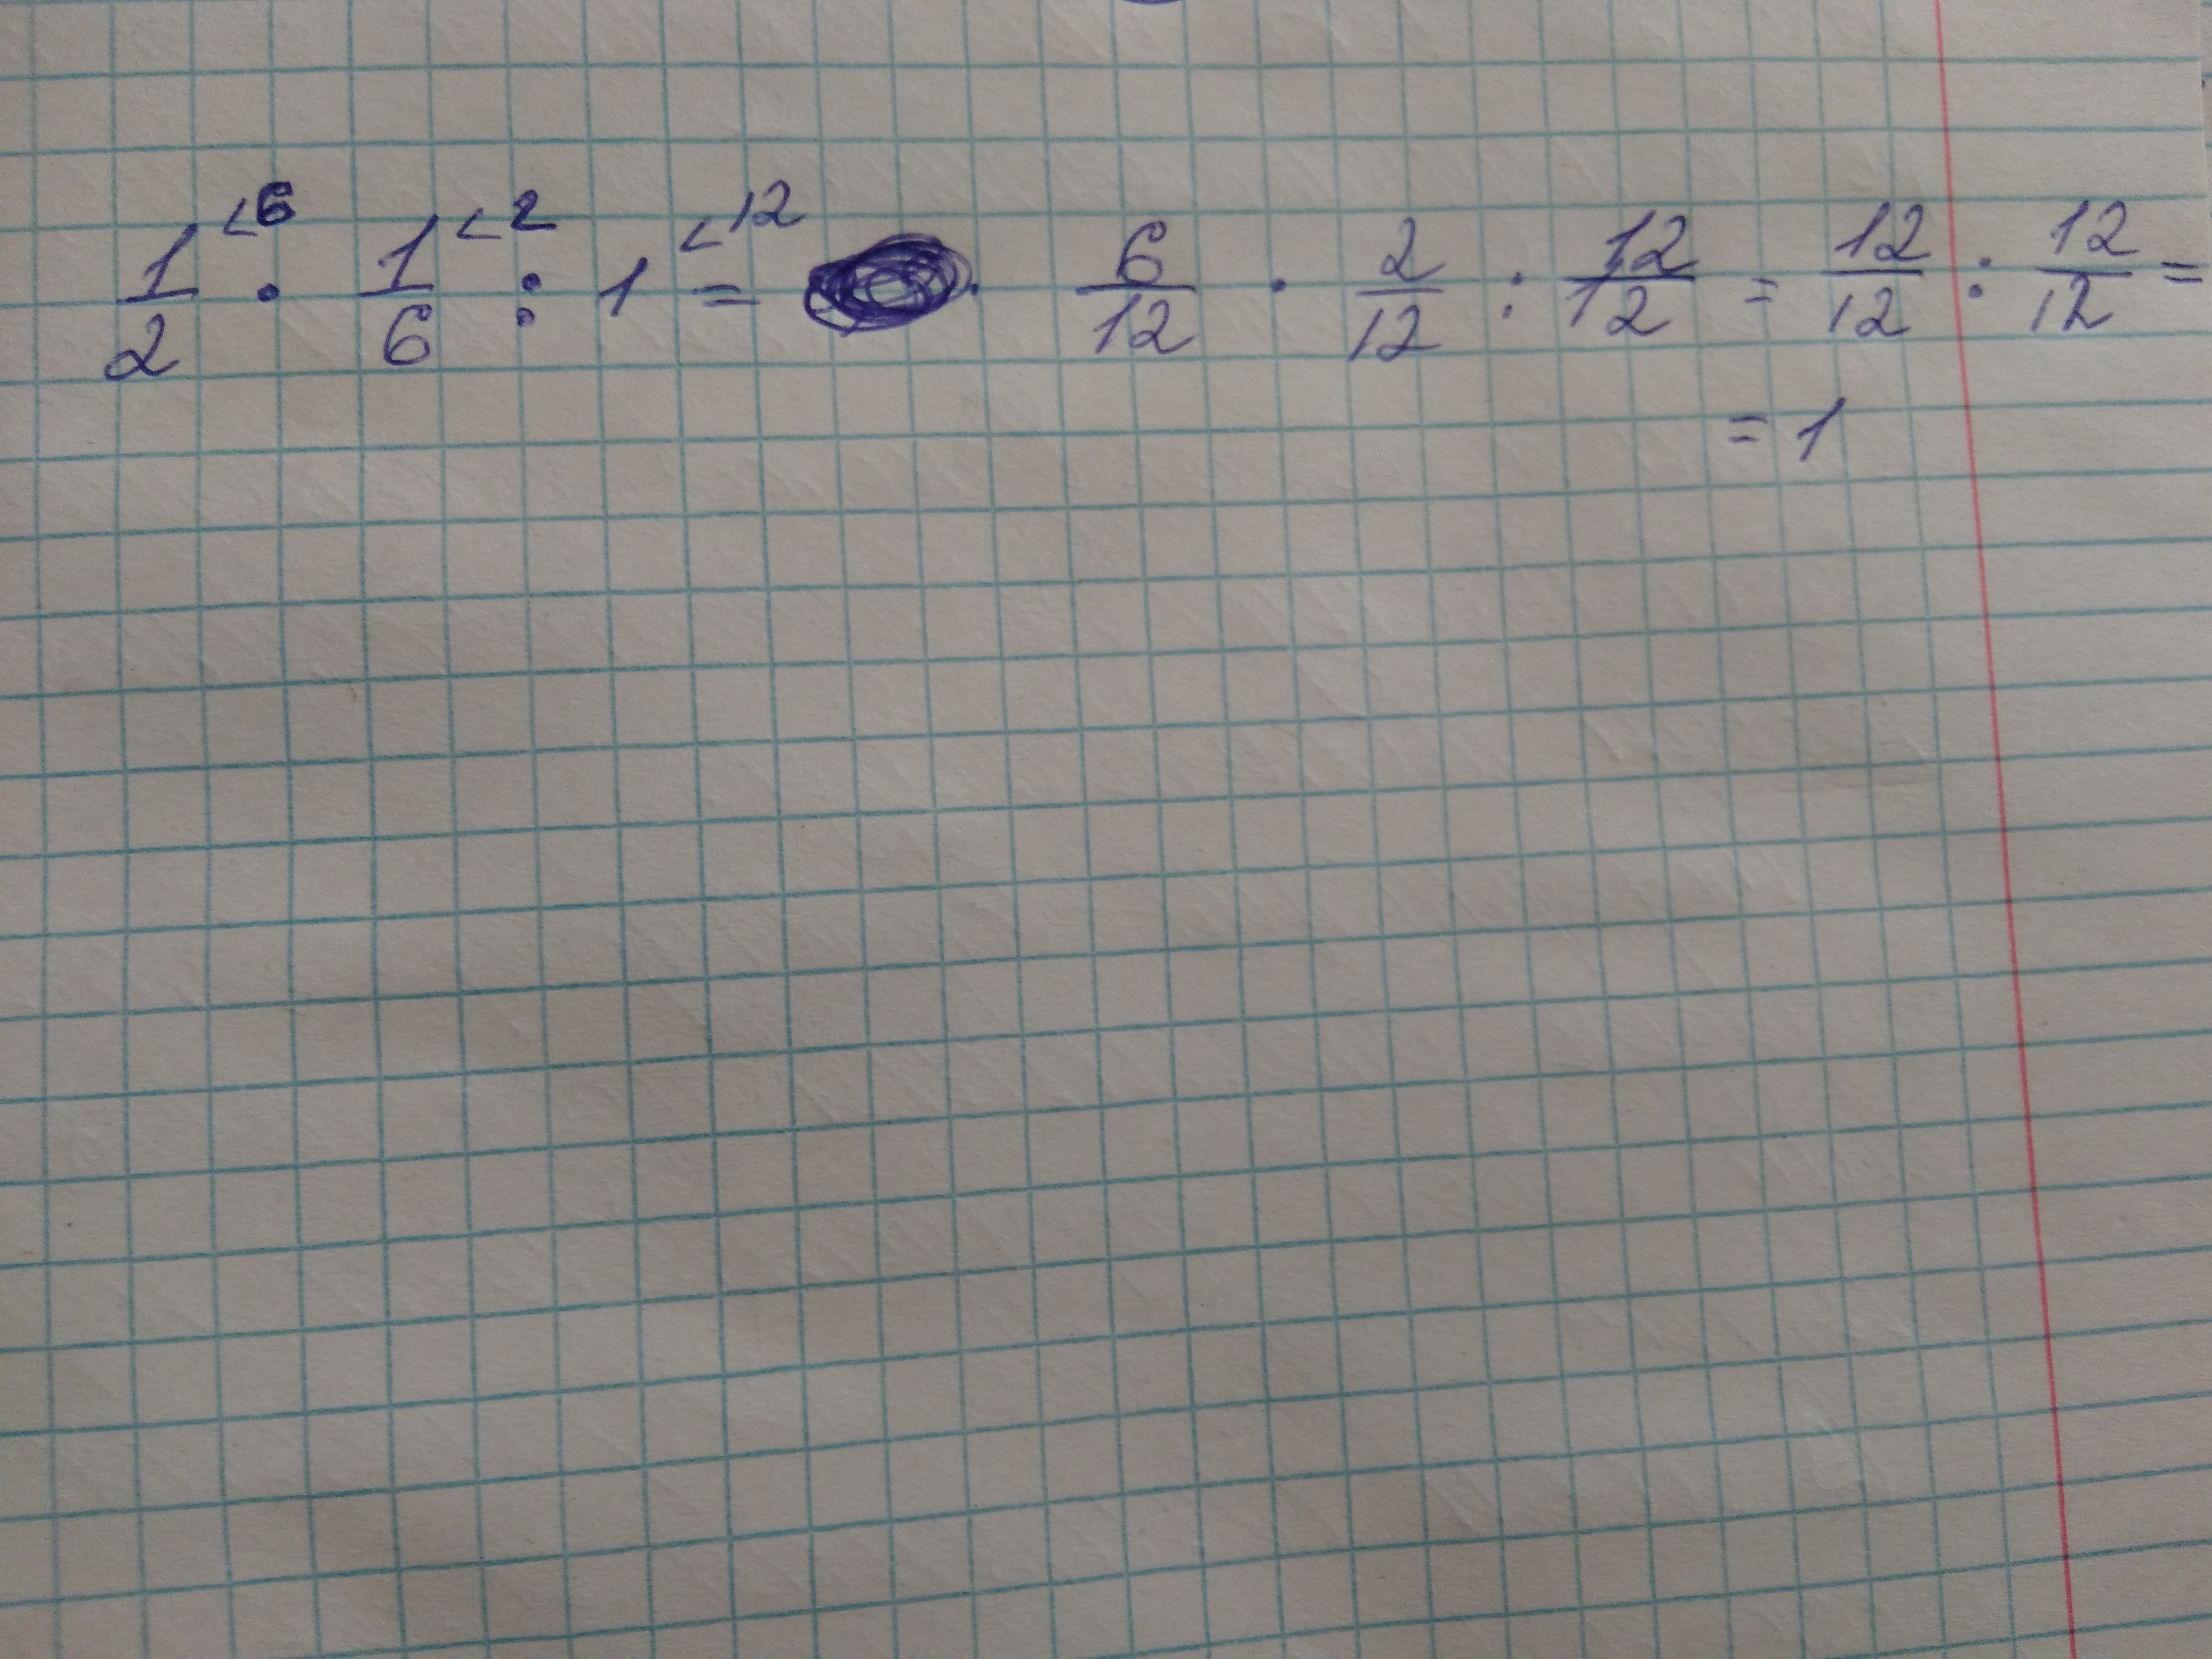 1/2 <6 · 1/6 <2 : 1 <12 = · 6/12 · 2/12 : 12/12 = 12/12 : 12/12 =
= 1